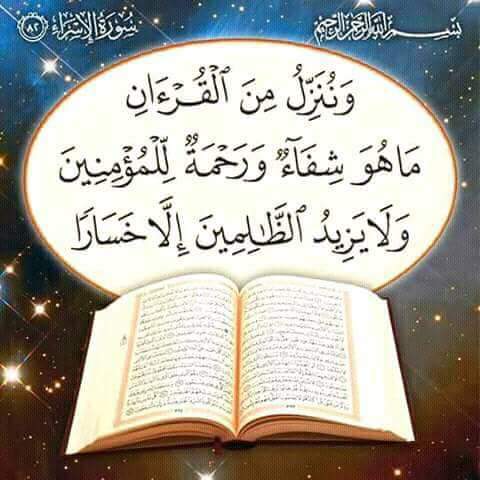 بسم الله الرحمن الرحيم
سُورَةُ الإِسْرَاء ٨٢
وَنُنَزِّلُ مِنَ ٱلْقُرْءَانِ
مَا هُوَ شِفَآءٌ وَرَحْمَةٌ لِّلْمُؤْمِنِينَ
وَلَا يَزِيدُ ٱلظَّٰلِمِينَ إِلَّا خَسَارًا